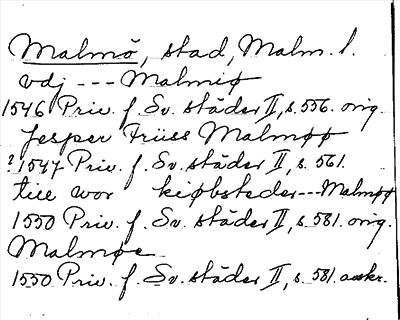 Malmö, stad, Malm. l.
vdj --- Malmiø
1546 Priv. f. Sv. städer II, s. 556. orig.
Jesper Friiss Malmøø
? 1547 Priv. f. Sv. städer II, s. 561.
tiil wor kiøbsteder --- Malmøø
1550 Priv. f. Sv. städer II, s. 581. orig.
Malmøe
1550 Priv. f. Sv. städer II, s. 581. avskr.